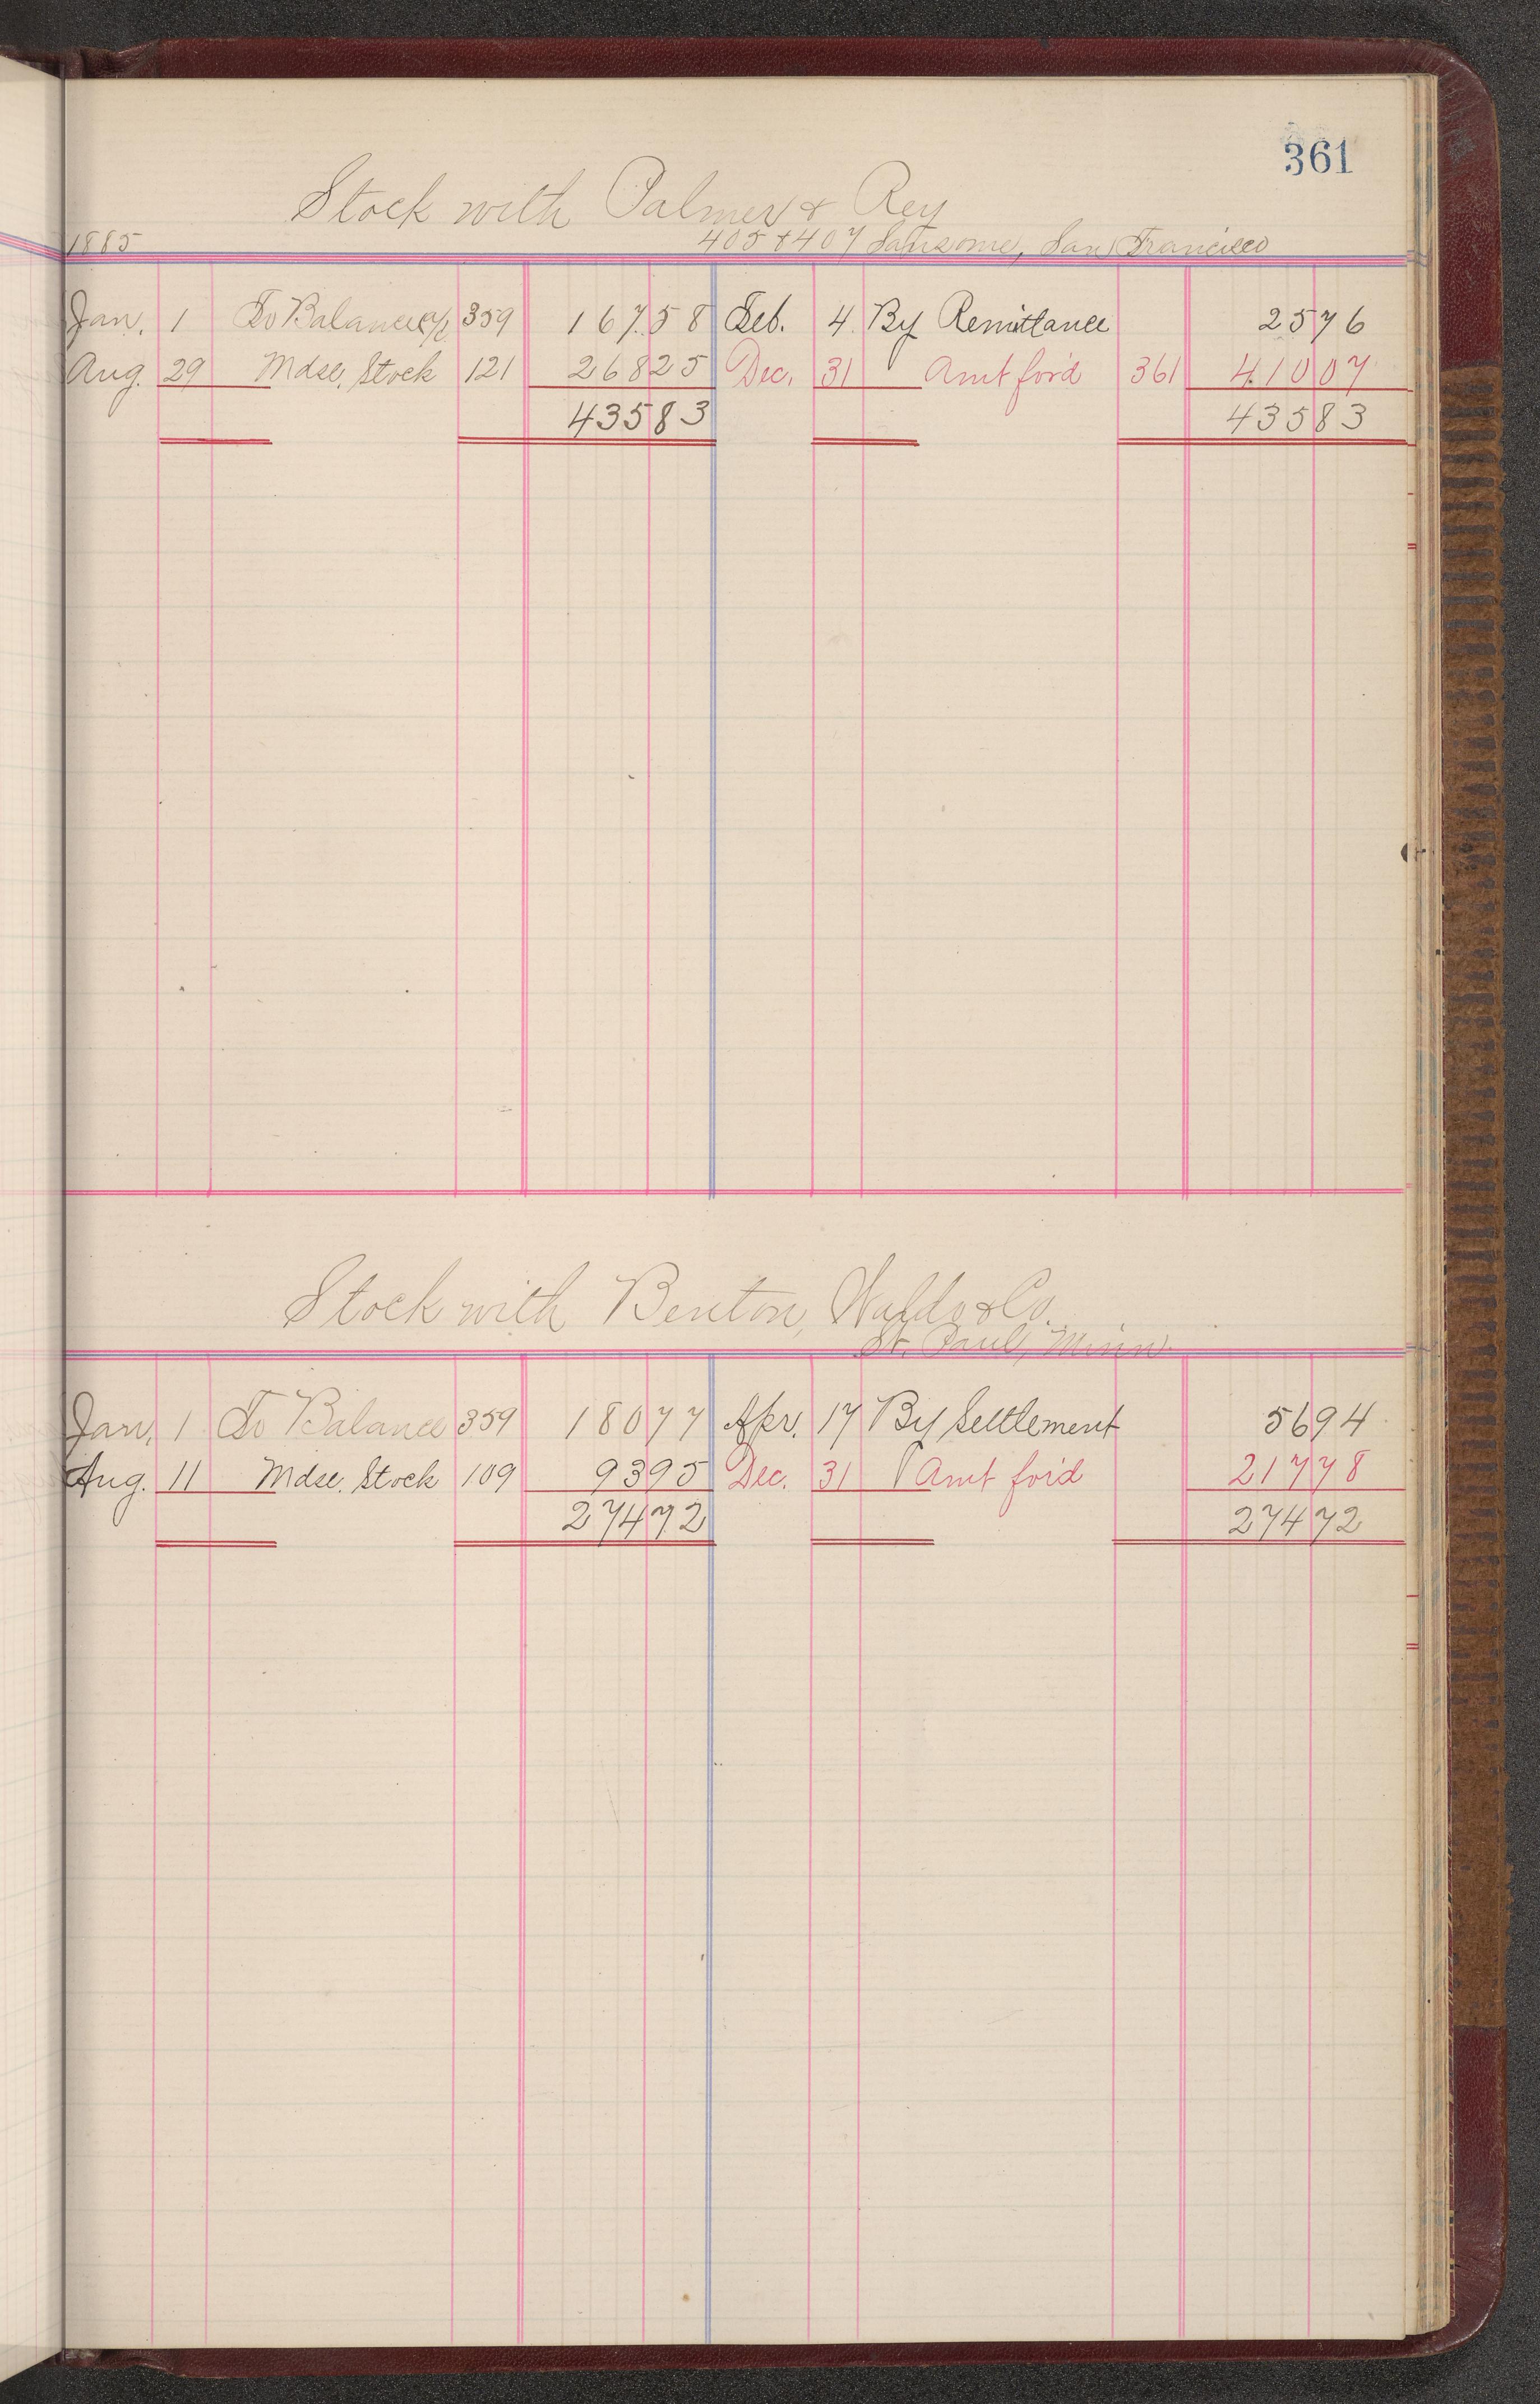 361
Stock with Palmer & Rey
1885 405 & 407 Sansome, San Francisco
Jan. 1 To Balance 359 167 58 Feb. 4 By Remittance 25 76
Aug. 29 Mdse. Stock 121 268 25 Dec. 31 Amt for'd 361 410 07
435 83 435 83
Stock with Benton, Waldo & Co.
St. Paul, Minn.
Jan. 1 To Balance 359 180 77 Apr. 17 By Settlement 56 94
Aug. 11 Mdse. Stock 109 93 95 Dec. 31 Amt for'd 217 78
274 72 274 72